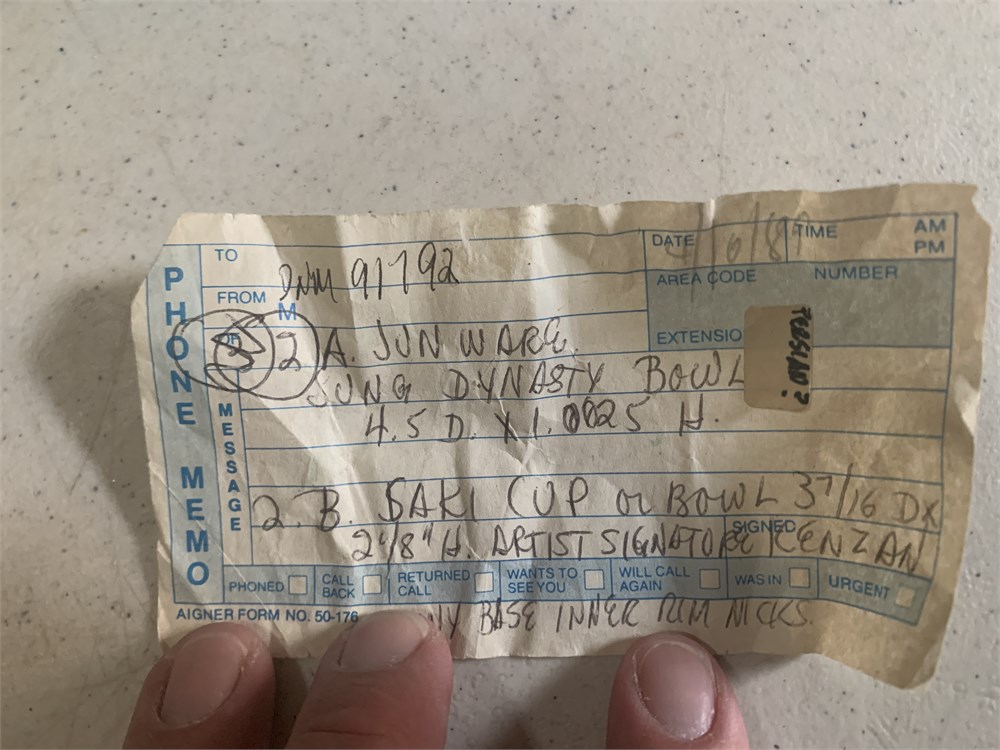 PHONE MEMO
TO
DATE
TIME AM PM
FROM DNM 91792
AREA CODE NUMBER
M
OF
EXTENSIO
PERSIAN?
2 A. JUN WARE.
SUNG DYNASTY BOWL
4.5 D. X 1. 25 H.
MESSAGE
2. B. SAKI CUP or BOWL 37/16 DX
2 1/8" H. ARTIST SIGNATORE KENZAN
SIGNED
PHONED CALL BACK RETURNED CALL WANTS TO SEE YOU WILL CALL AGAIN WAS IN URGENT
AIGNER FORM NO. 50-176
BASE INNER RIM NICKS.